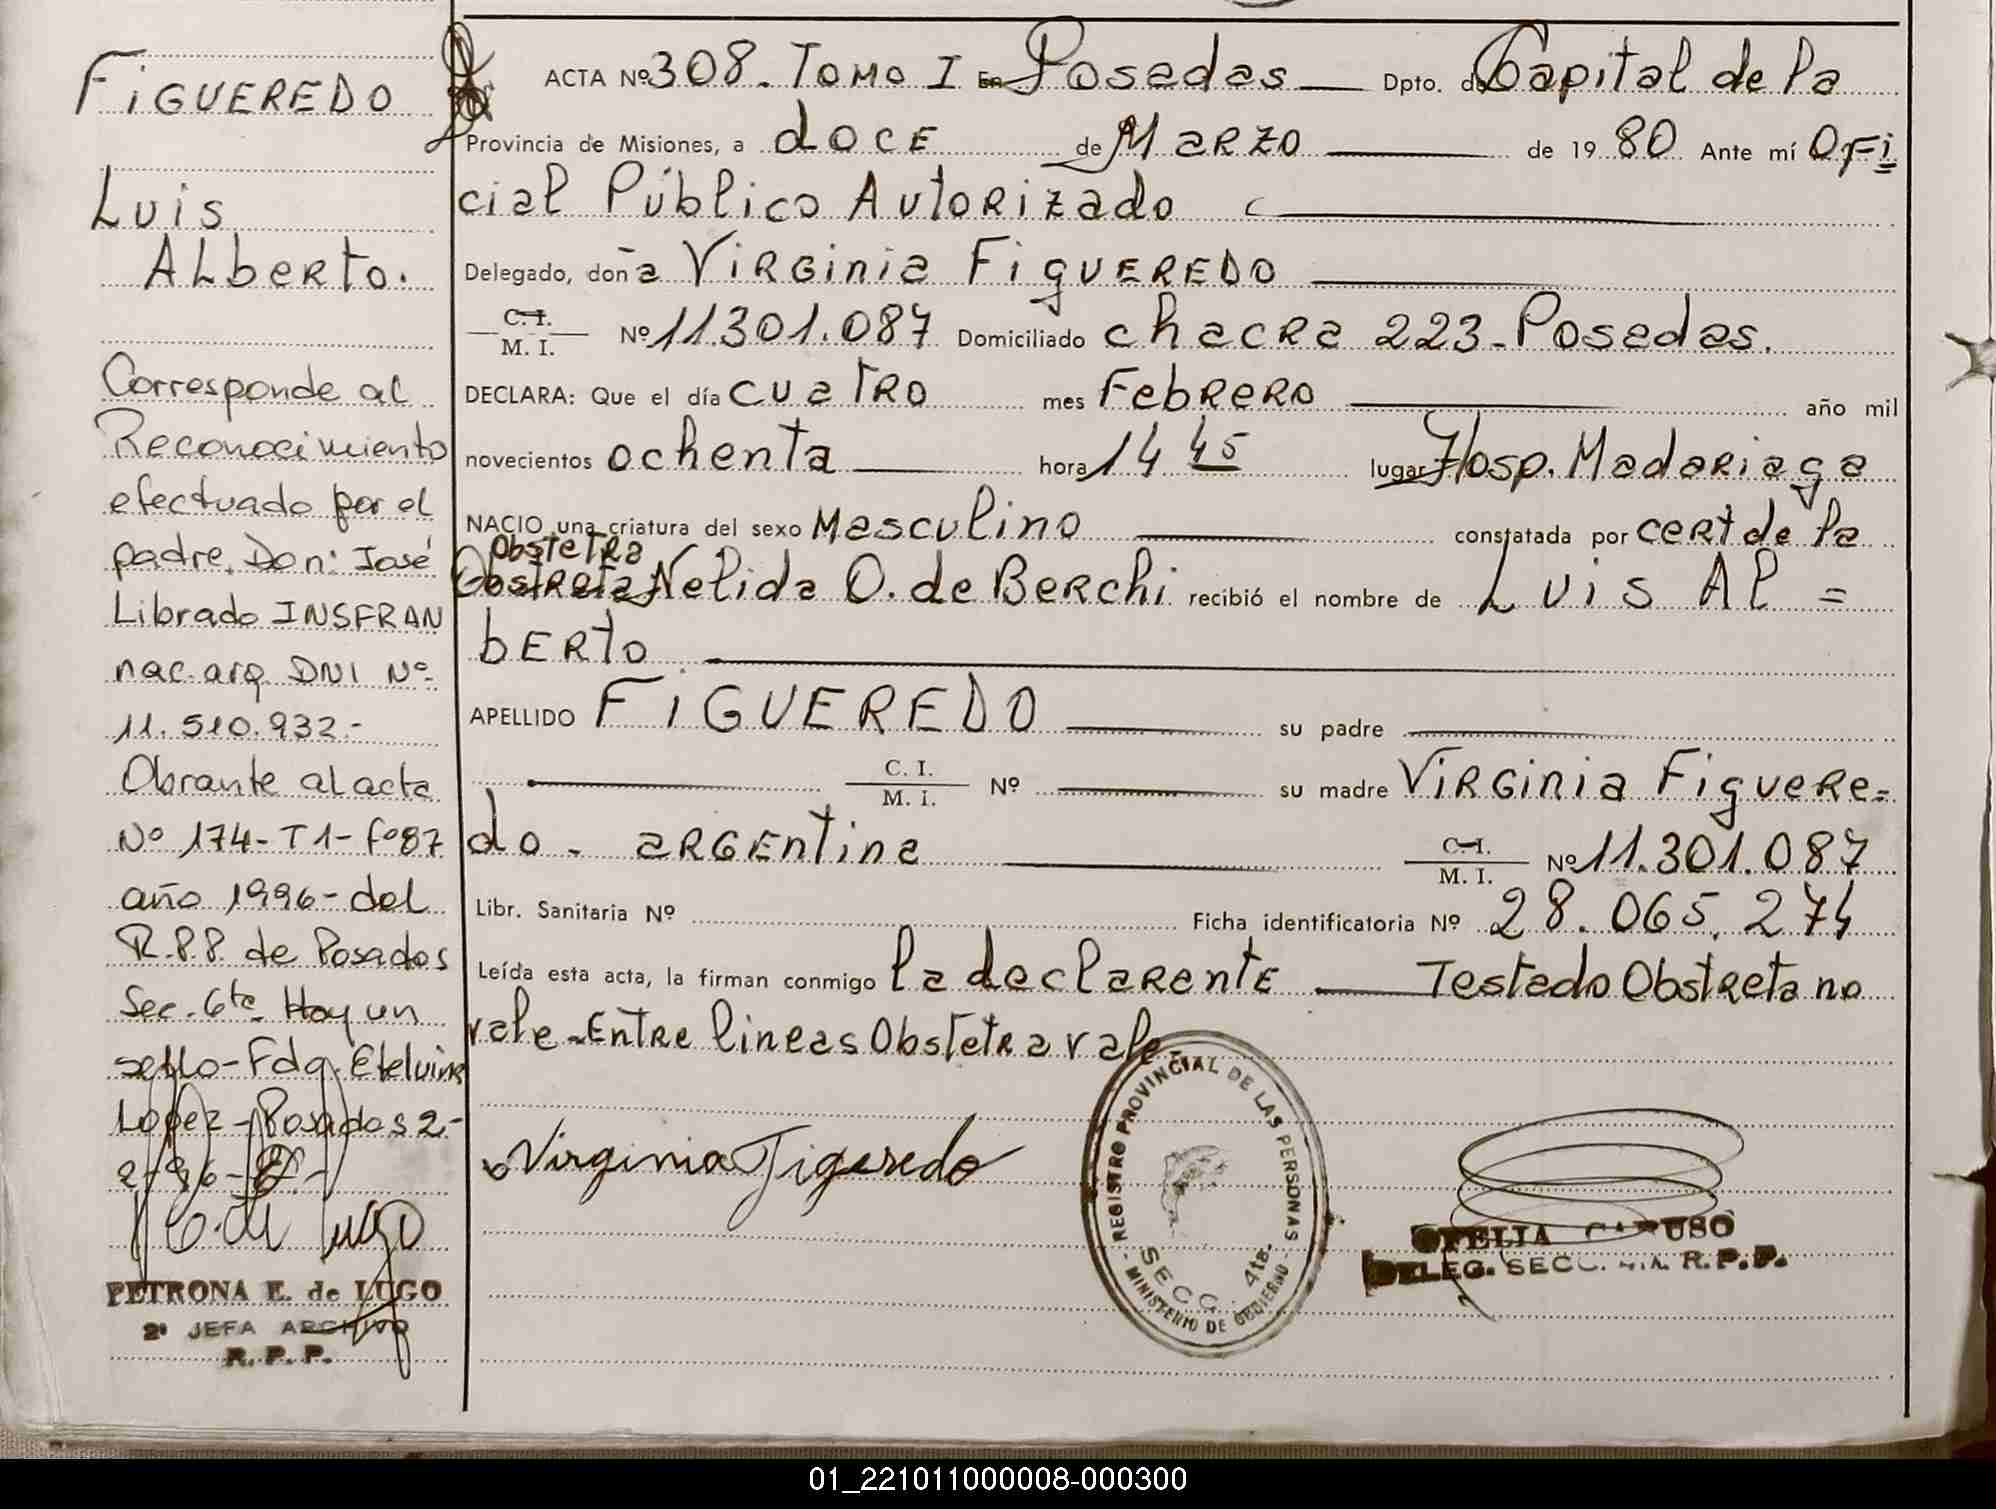 FIGUEREDO
Luis
Alberto.
Corresponde al
Reconocimiento
efectuado por el
padre. Don: José
Librado INSFRAN
nac. arg. DNI Nº
11.510.932.-
Obrante al acta
Nº 174-T1-fº87
año 1996-del
R.P.P. de Posadas
Sec. 6ta Hay un
sello-Fdo. Etelvina
Lopez-Posadas 2-
2-96-
PETRONA E. de LUGO
2º JEFA ARCHIVO
R. P. P.
ACTA Nº 308. Tomo I En Posadas Dpto. de Capital de la
Provincia de Misiones, a doce de Marzo de 1980 Ante mí Ofi
cial Público Autorizado
Delegado, doña Virginia Figueredo
C. I.
M. I. Nº 11.301.087 Domiciliado chacra 223-Posadas.
DECLARA: Que el día cuatro mes Febrero año mil
novecientos ochenta hora 14 45 lugar Hosp. Madariaga
NACIO una criatura del sexo Masculino constatada por cert de la
Obstetra
Obstreta Nelida O. de Berchi recibió el nombre de Luis Al=
berto
APELLIDO FIGUEREDO su padre
C. I.
M. I. Nº su madre Virginia Figuere=
do - argentina C. I.
M. I. Nº 11.301.087
Libr. Sanitaria Nº Ficha identificatoria Nº 28.065.274
Leída esta acta, la firman conmigo la declarante Testado Obstreta no
vale-Entre lineas Obstetra vale
Virginia Figeredo
- REGISTRO PROVINCIAL DE LAS PERSONAS -
SECC. 4ta.
MINISTERIO DE GOBIERNO
OFELIA CARUSO
DELEG. SECC. 4ta. R.P.P.
01_221011000008-000300